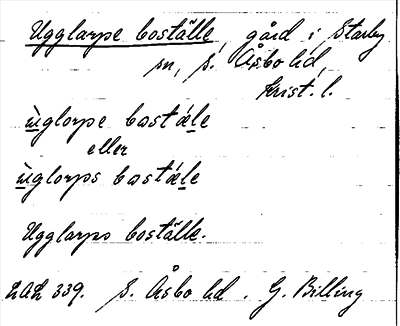 Ugglarpe boställe, gård i Starby
sn, S. Åsbo hd,
Krist. l.
ùglorpe bostǽle
eller
ùglorps bostǽle
Ugglarps boställe.
LAL 339. S. Åsbo hd. G. Billing